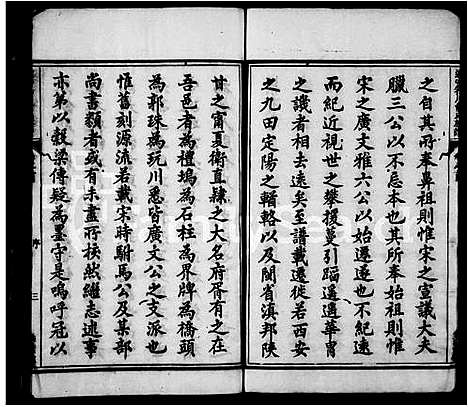 之自其所奉鼻祖則惟宋之宣議大夫
臘三公以不忘本也其所奉始祖則惟
宋之廣文雅六公以始遷遂也不紀遠
而紀近視世之攀援蔓引蹈遥遥華胄
之譏者相去遠矣至譜載遷徙若西安
之九田定陽之轄輅以及閩省滇邦陕
甘之甯夏衛直隷之大名府胥有之在
吾邑者為禮塢為石柱為界牌為橋頭
為郭珠為玩川悉皆廣文公之支派也
惟舊刻源流若載宋時駙馬公及某部
尚書類者或有未盡所核然繼志述事
亦第以穀梁傳疑為墨守是嗚呼冠以
序
三